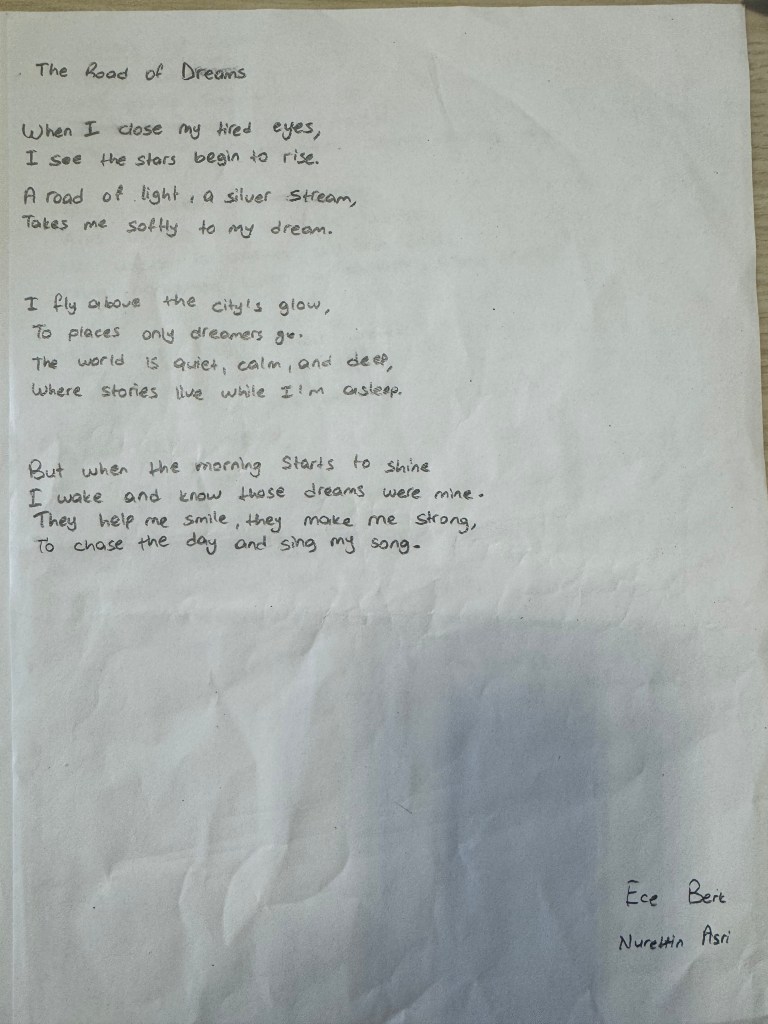 The Road of Dreams
When I close my tired eyes,
I see the stars begin to rise.
A road of light, a silver stream,
Takes me softly to my dream.
I fly above the city's glow,
To places only dreamers go.
The world is quiet, calm, and deep,
Where stories live while I'm asleep.
But when the morning starts to shine
I wake and know those dreams were mine.
They help me smile, they make me strong,
To chase the day and sing my song.
Ece Berk
Nurettin Asri